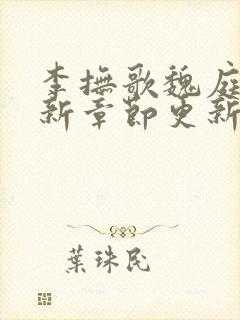 李撫歌魏庭
新章節更新
葉珠民